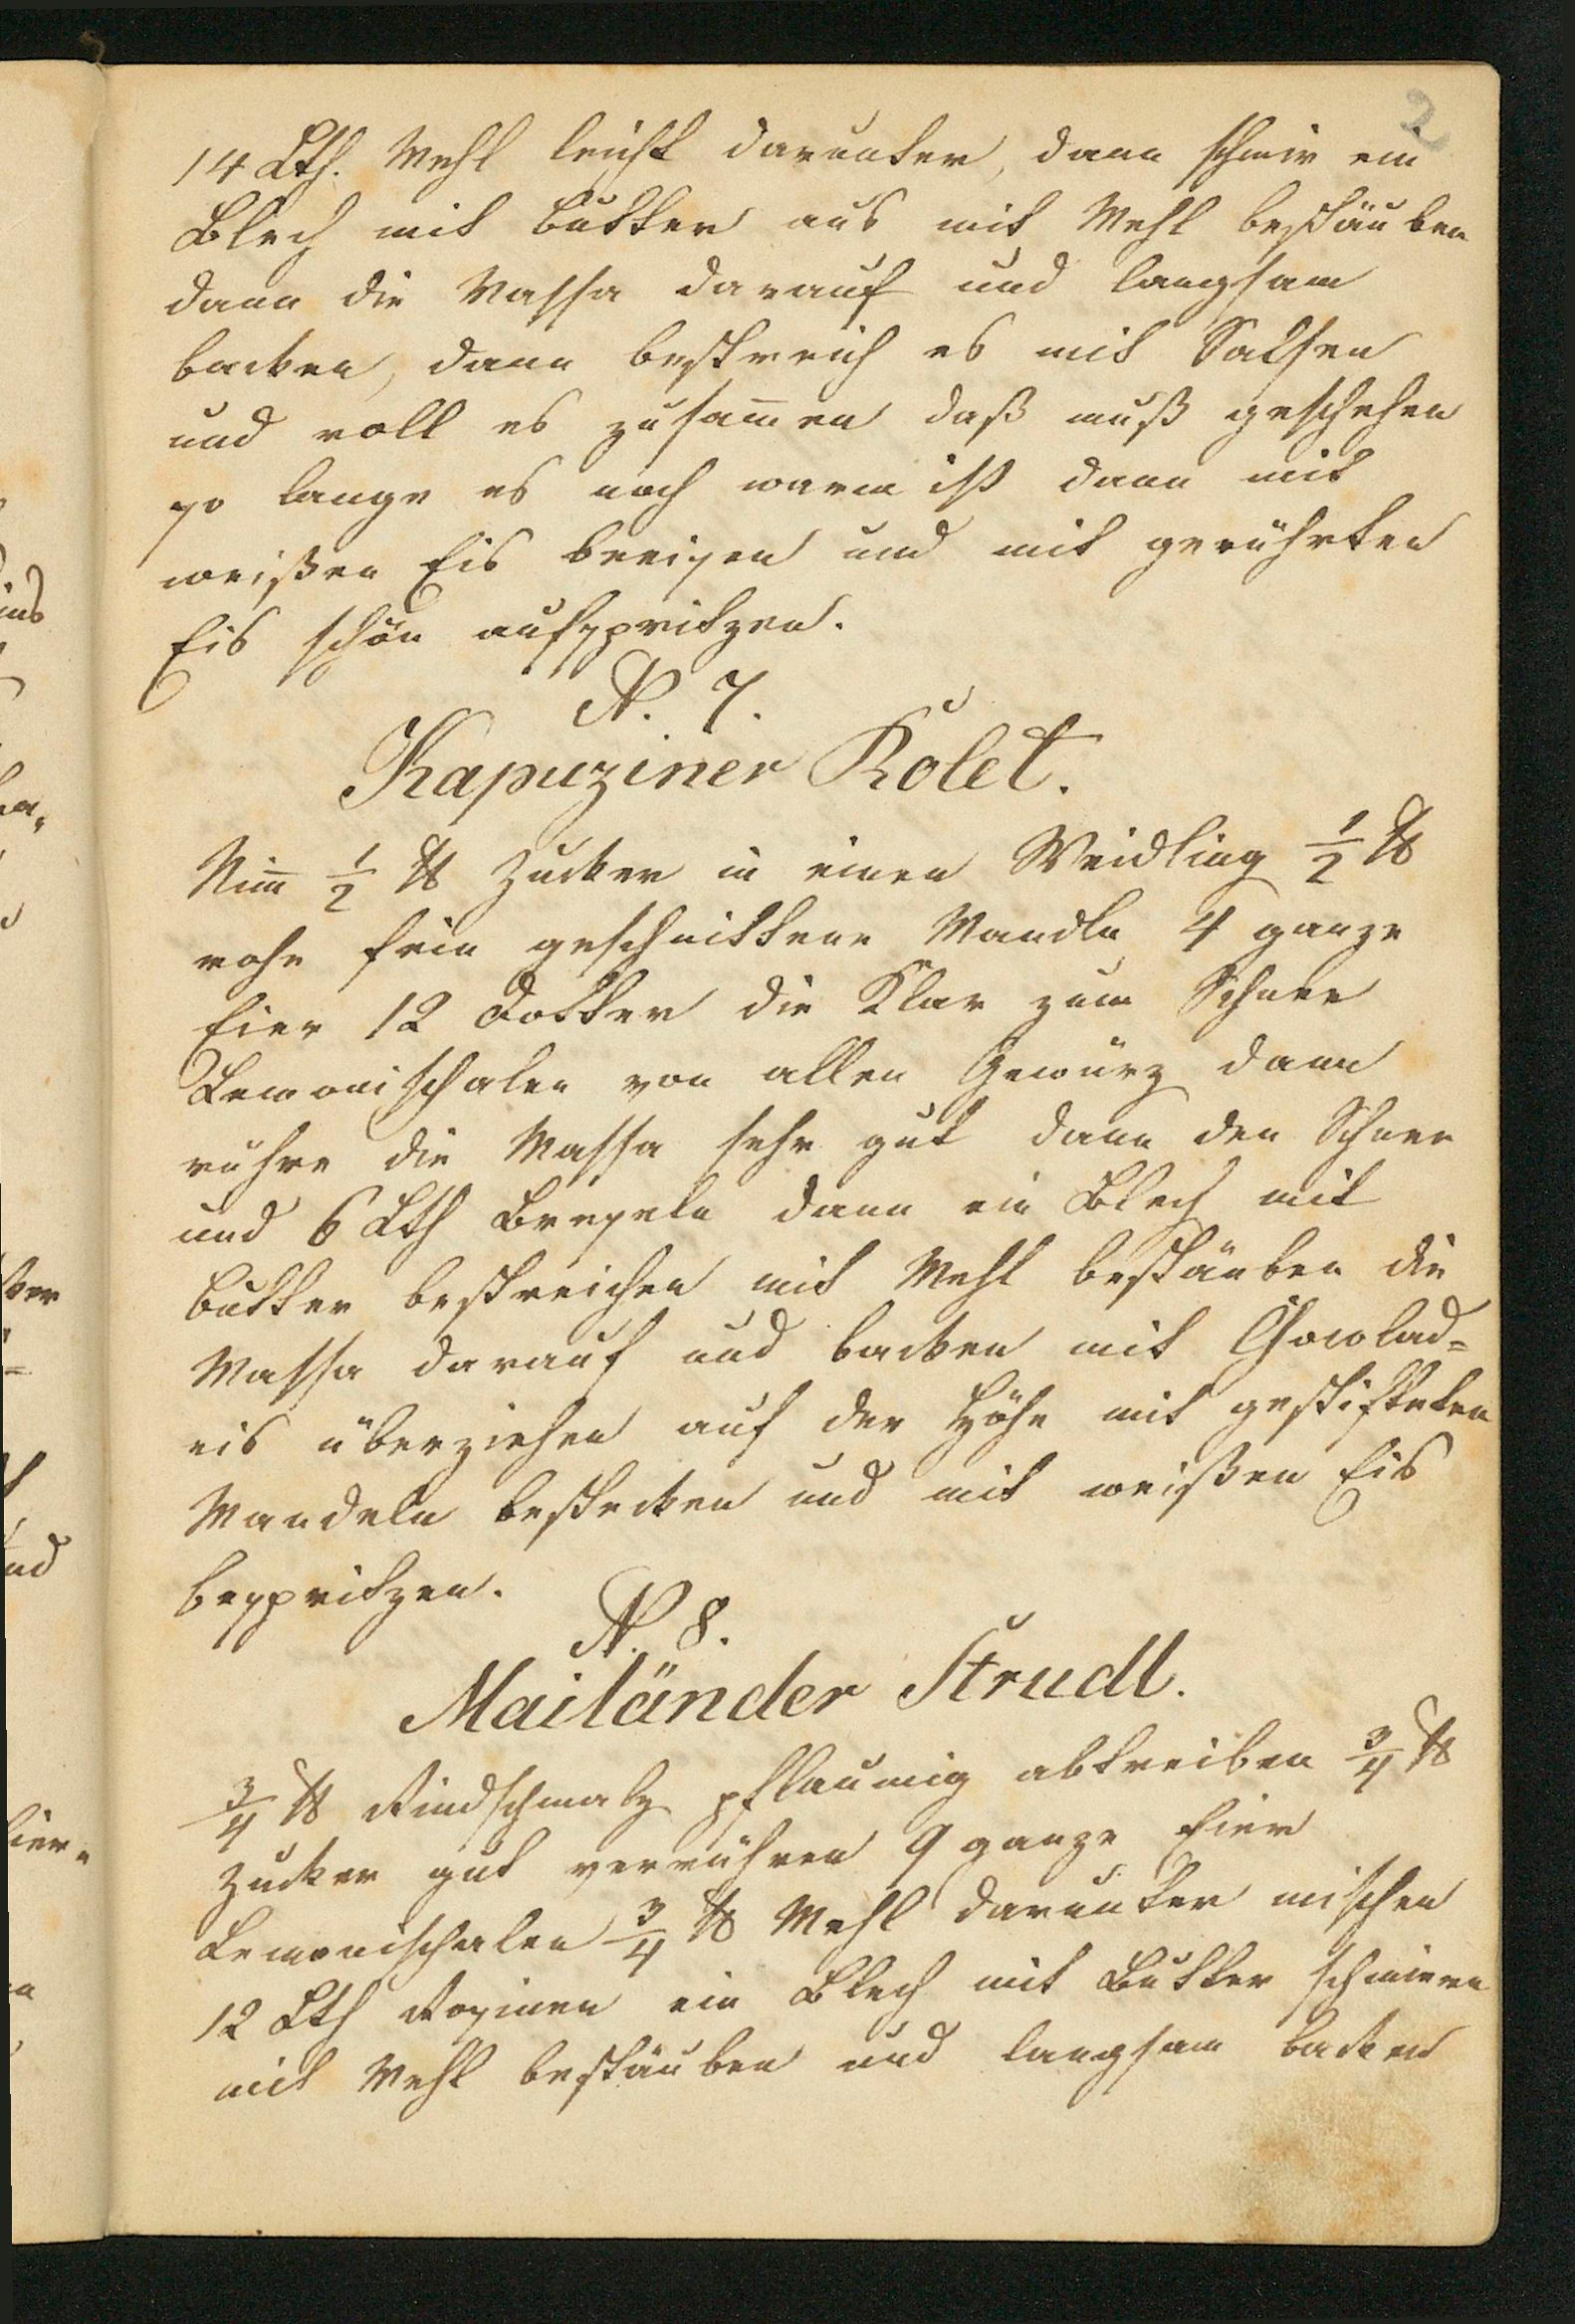 2
14 Lth. Mehl leicht darunter, dann schmir ein
Blech mit Butter aus mit Mehl bestäuben
dann die Massa darauf und langsam
backen, dann bestreich es mit Salsen
und roll es zusam̄en daß muß geschehen
so lange es noch warm ist dann mit
weißen Eis beeisen und mit gerührten
Eis schön aufspritzen.
N. 7.
Kapuziner Kolet.
Nim̄ 1/2 ℔ Zucker in einen Weidling 1/2 ℔
rohe fein geschnittene Mandln 4 ganze
Eier 12 Dotter die Klar zum Schnee
Lemonischalen von allen Gewürz dann
rühre die Massa sehr gut dann den Schnee
und 6 Lth Breseln dann ein Blech mit
Butter bestreichen mit Mehl bestäuben die
Massa darauf und backen mit Chocolad=
eis überziehen auf der Höhe mit gestifteten
Mandeln bestecken und mit weißen Eis
bespritzen.
N. 8.
Mailänder Strudl.
3/4 ℔ Rindschmalz pflaumig abtreiben 3/4 ℔
Zucker gut verrühren 9 ganze Eier
Lemonischalen 3/4 ℔ Mehl darunter mischen
12 Lth Rosinen ein Blech mit Butter schmieren
mit Mehl bestäuben und langsam backen